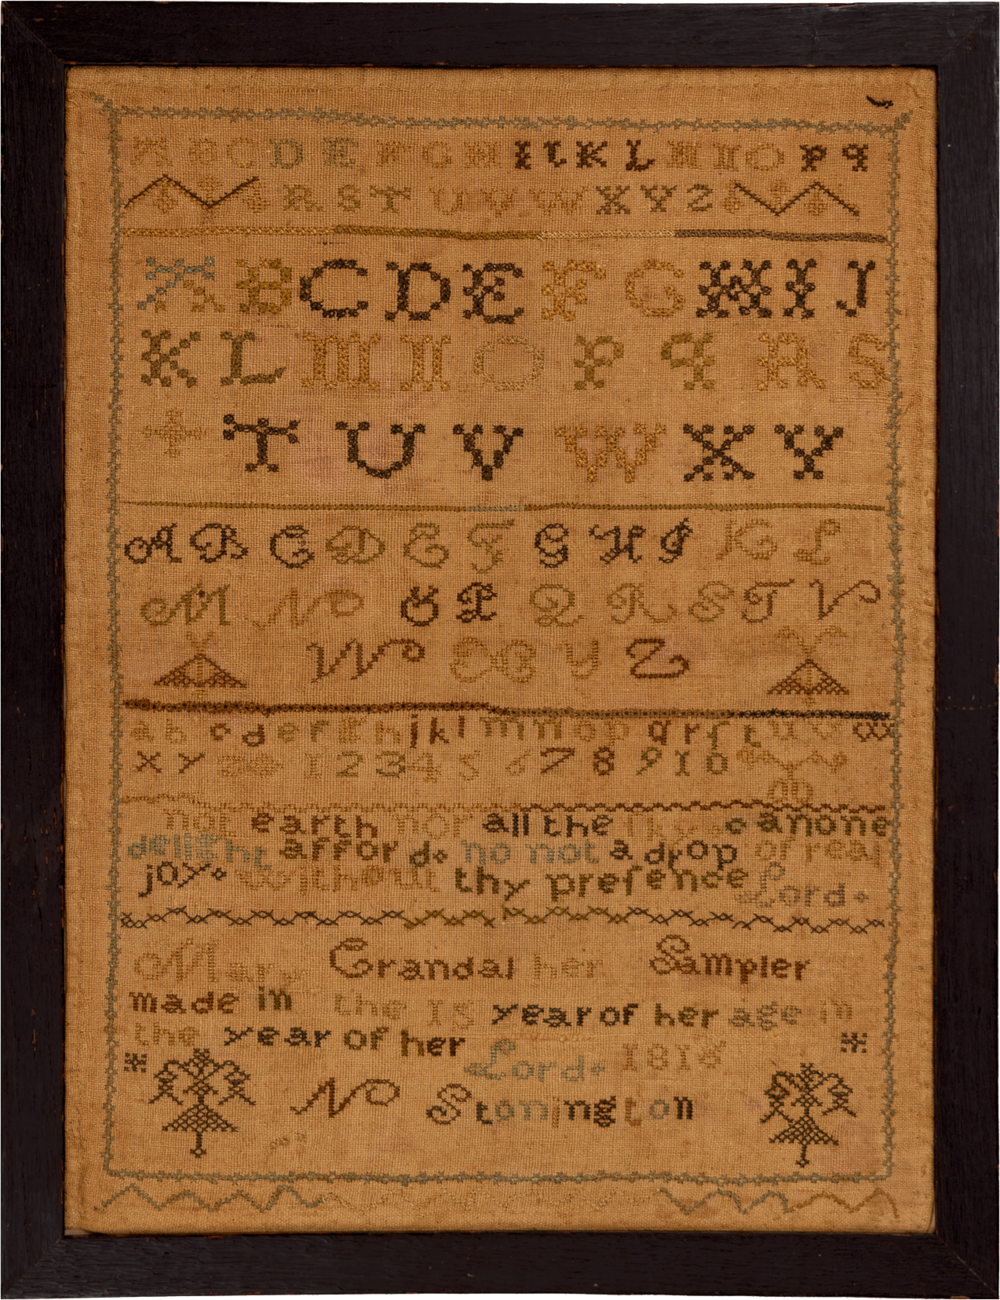 A B C D E F G H I J K L M N O P q
R S T U V W X Y Z
A B C D E F G H I J
K L M N O P q R S
T U V W X Y
A B C D E F G H I K L
M N O P Q R S T V
W X Y Z
a b c d e f g h i j k l m n o p q r ſ t u v w
x y z 1 2 3 4 5 6 7 8 9 10
not earth nor all the ſky canone
delight afford no not a drop of real
joy without thy preſence Lord
Mary Crandal her Sampler
made in the 15 year of her age in
the year of her Lord 1818
No Stonington